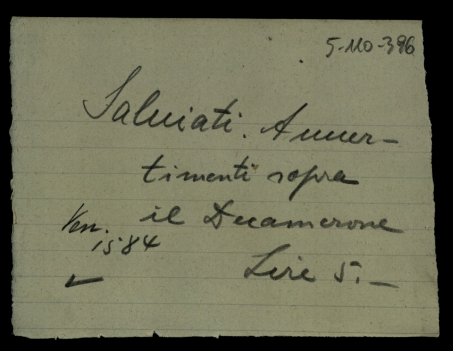 5-110-396
Salviati. Avver-
timenti sopra
il Decamerone
Ven.
1584
Lire 5.—